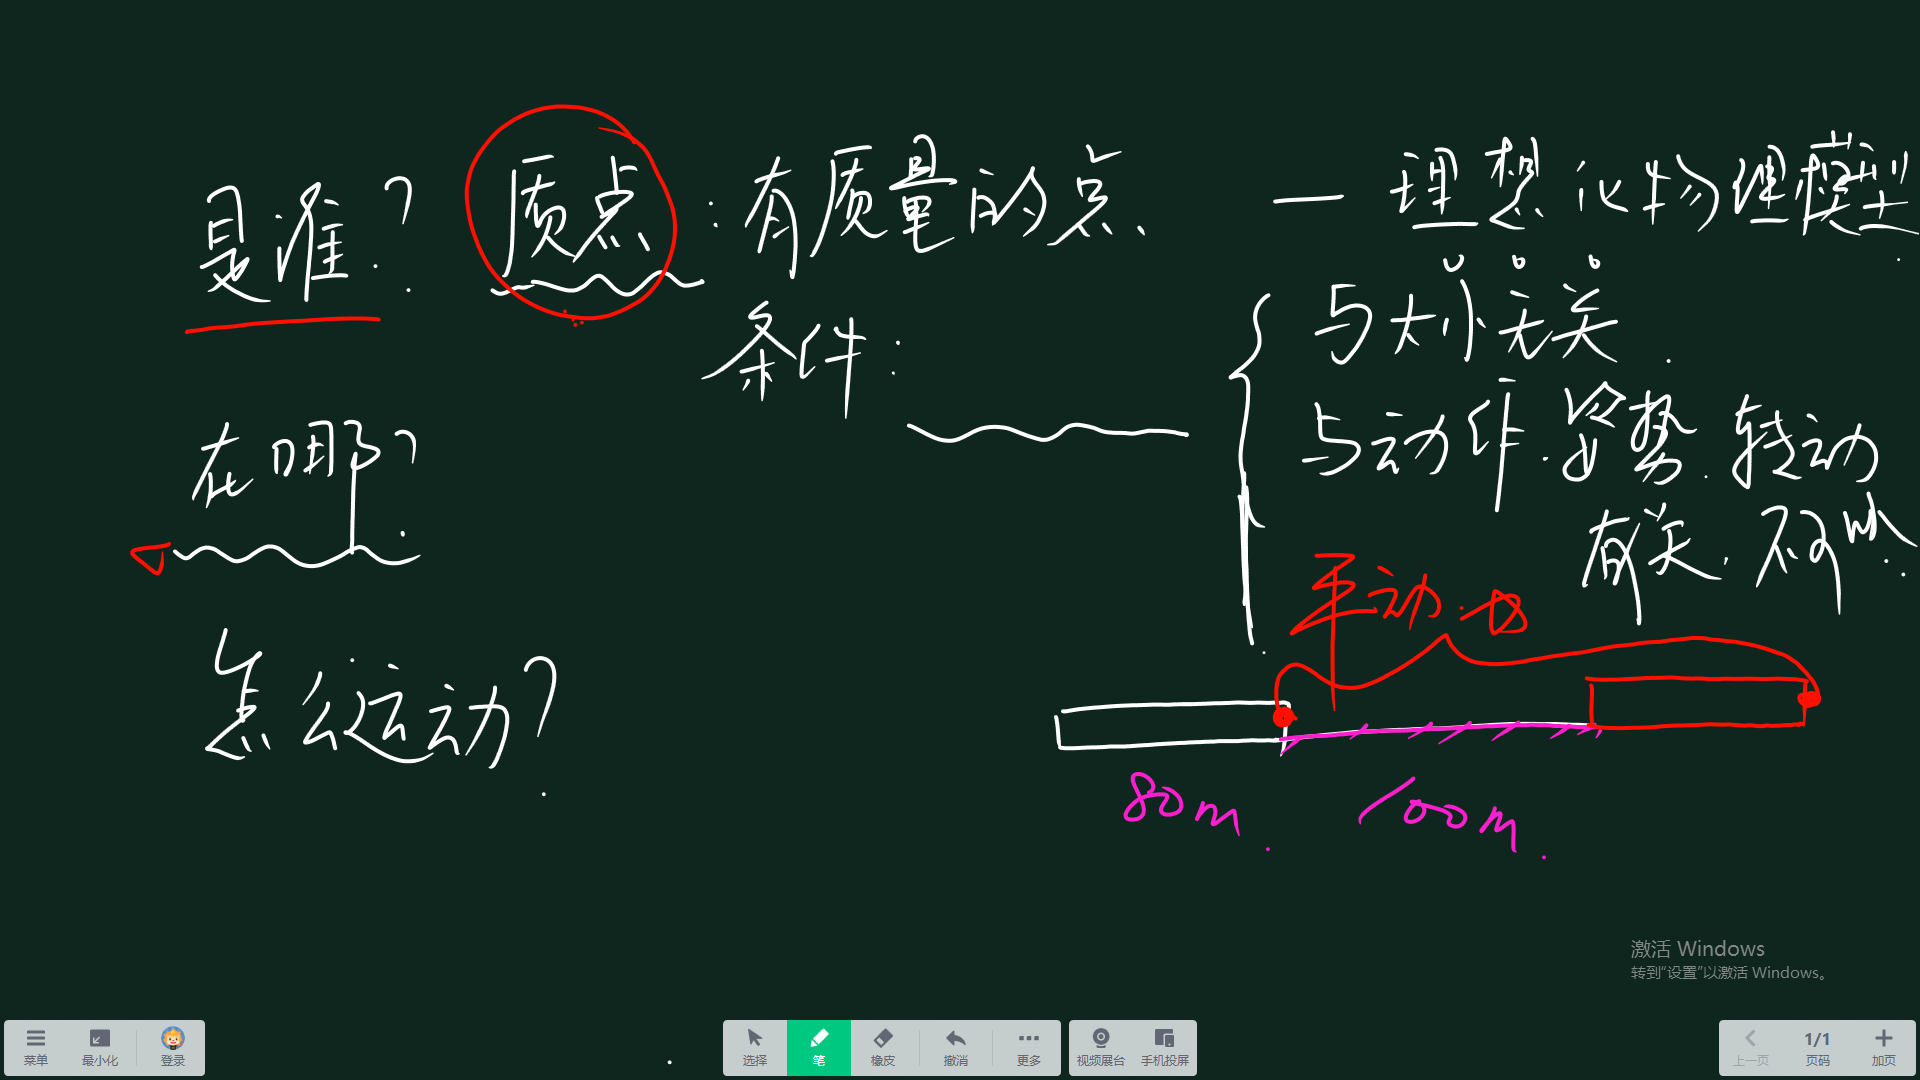 是谁? 质点:有质量的点. — 理想化物理模型.
条件: 与大小无关.
与动作.姿势.转动
有关,不可以.
在哪?
平动.可
怎么运动?
80m. 100m.
激活 Windows
转到“设置”以激活 Windows。
菜单 最小化 登录 选择 笔 橡皮 撤消 更多 视频展台 手机投屏 上一页 1/1 页码 加页